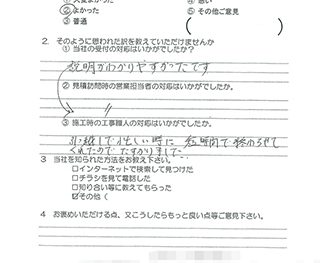 ① 大変よかった ④ 悪い
② よかった ⑤ その他ご意見
③ 普通 ( )
2. そのように思われた訳を教えていただけませんか
① 当社の受付の対応はいかがでしたか?
説明がわかりやすかったです
② 見積訪問時の営業担当者の対応はいかがでしたか?
〃
③ 施工時の工事職人の対応はいかがでしたか?
引越しで忙しい時に 短時間で終わらせて
くれたので たすかりました。
3 当社を知られた方法をお教え下さい。
□インターネットで検索して見つけた
□チラシを見て電話した
□知り合い等に教えてもらった
☑その他(
4 お褒めいただける点、又こうしたらもっと良い点等ご意見下さい。